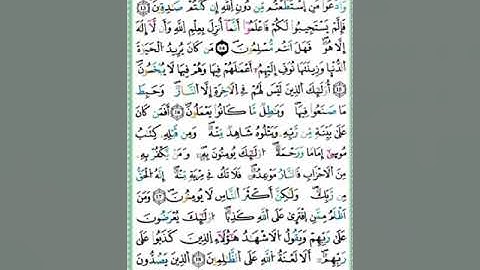 وَادْعُوا مَنِ اسْتَطَعْتُم مِّن دُونِ اللَّهِ إِن كُنتُمْ صَادِقِينَ ١٣
فَإِلَّمْ يَسْتَجِيبُوا لَكُمْ فَاعْلَمُوا أَنَّمَا أُنزِلَ بِعِلْمِ اللَّهِ وَأَن لَّا إِلَٰهَ
إِلَّا هُوَ فَهَلْ أَنتُم مُّسْلِمُونَ ١٤ مَن كَانَ يُرِيدُ الْحَيَاةَ
الدُّنْيَا وَزِينَتَهَا نُوَفِّ إِلَيْهِمْ أَعْمَالَهُمْ فِيهَا وَهُمْ فِيهَا لَا يُبْخَسُونَ
١٥ أُولَٰئِكَ الَّذِينَ لَيْسَ لَهُمْ فِي الْآخِرَةِ إِلَّا النَّارُ وَحَبِطَ
مَا صَنَعُوا فِيهَا وَبَاطِلٌ مَّا كَانُوا يَعْمَلُونَ ١٦ أَفَمَن كَانَ
عَلَىٰ بَيِّنَةٍ مِّن رَّبِّهِ وَيَتْلُوهُ شَاهِدٌ مِّنْهُ وَمِن قَبْلِهِ كِتَابُ
مُوسَىٰ إِمَامًا وَرَحْمَةً أُولَٰئِكَ يُؤْمِنُونَ بِهِ وَمَن يَكْفُرْ بِهِ
مِنَ الْأَحْزَابِ فَالنَّارُ مَوْعِدُهُ فَلَا تَكُ فِي مِرْيَةٍ مِّنْهُ إِنَّهُ الْحَقُّ
مِن رَّبِّكَ وَلَٰكِنَّ أَكْثَرَ النَّاسِ لَا يُؤْمِنُونَ ١٧ وَمَنْ
أَظْلَمُ مِمَّنِ افْتَرَىٰ عَلَى اللَّهِ كَذِبًا أُولَٰئِكَ يُعْرَضُونَ
عَلَىٰ رَبِّهِمْ وَيَقُولُ الْأَشْهَادُ هَٰؤُلَاءِ الَّذِينَ كَذَبُوا عَلَىٰ
رَبِّهِمْ أَلَا لَعْنَةُ اللَّهِ عَلَى الظَّالِمِينَ ١٨ الَّذِينَ يَصُدُّونَ